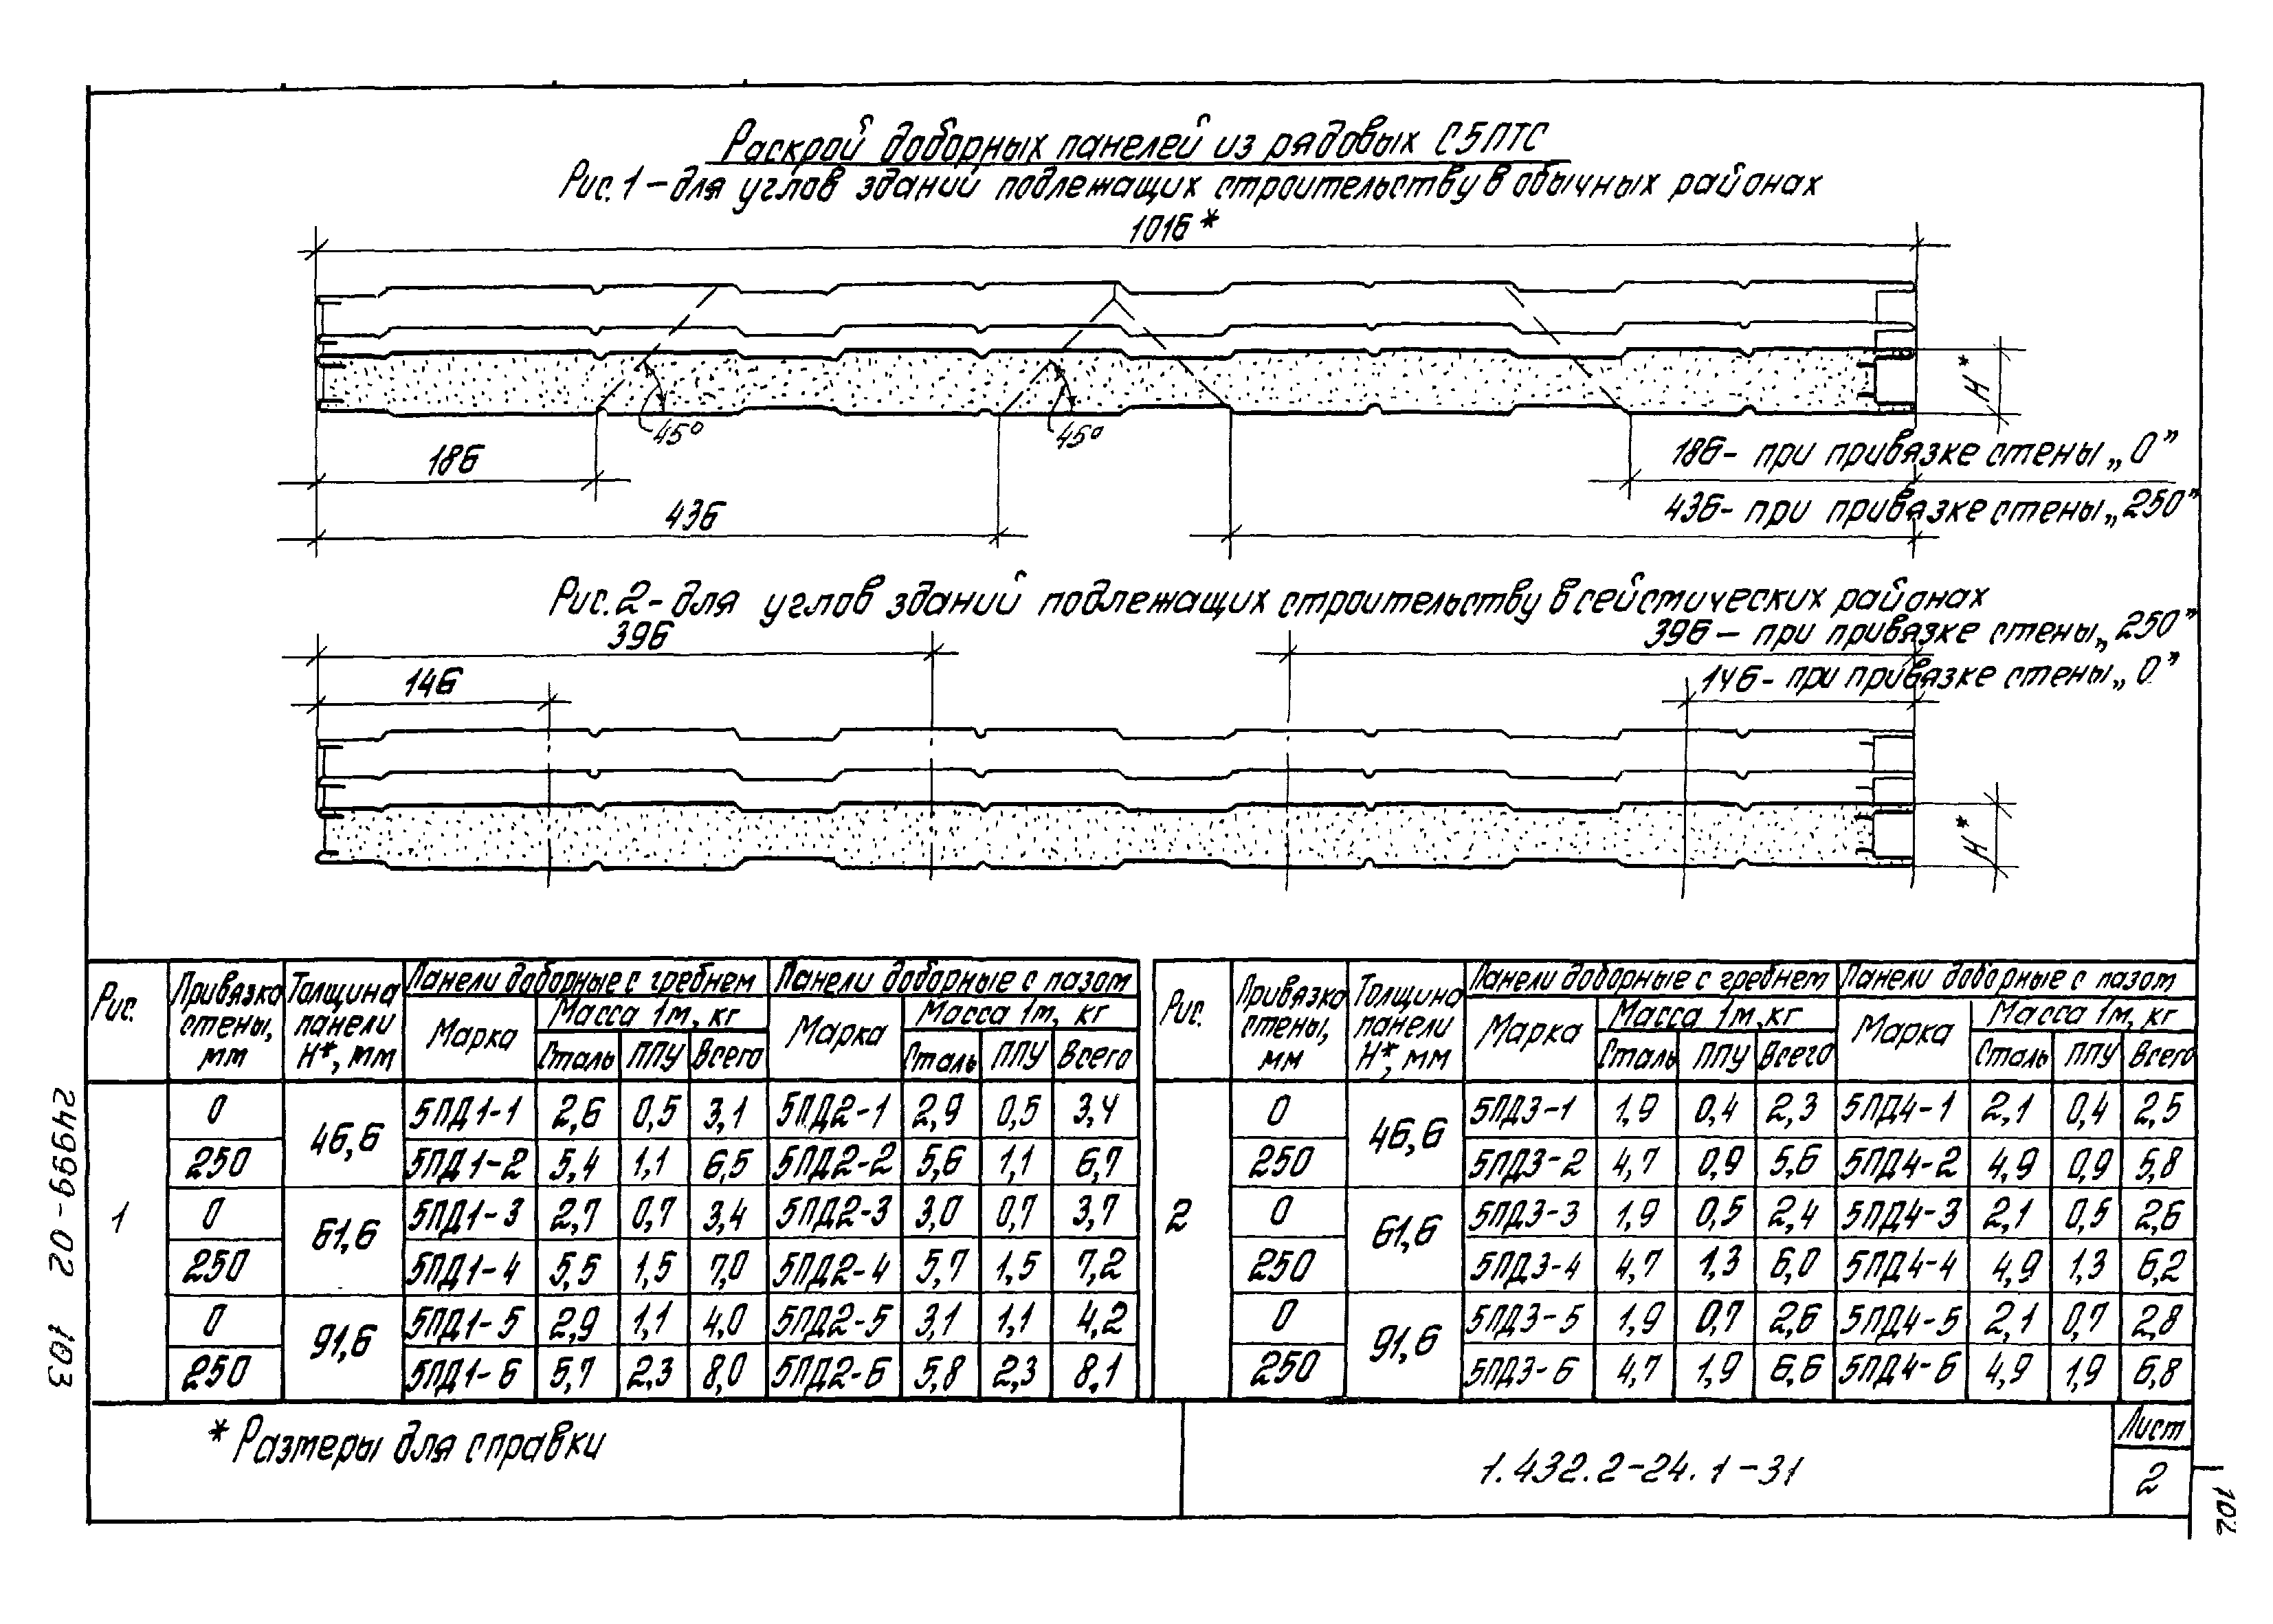 Раскрой доборных панелей из рядовых С5ПТС
Рис. 1 – для углов зданий подлежащих строительству в обычных районах
1016*
Н*
45°
45°
186
186- при привязке стены „0”
436
436- при привязке стены „250”
Рис. 2 - для углов зданий подлежащих строительству в сейсмических районах
396
396 – при привязке стены „250”
146
146- при привязке стены „0”
Н*
Рис. Привязка стены, мм Толщина панели Н*, мм Панели доборные с гребнем Панели доборные с пазом
Марка Масса 1м, кг Марка Масса 1м, кг
Сталь ППУ Всего Сталь ППУ Всего
1
0 46,6 5ПД1-1 2,6 0,5 3,1 5ПД2-1 2,9 0,5 3,4
250 5ПД1-2 5,4 1,1 6,5 5ПД2-2 5,6 1,1 6,7
0 61,6 5ПД1-3 2,7 0,7 3,4 5ПД2-3 3,0 0,7 3,7
250 5ПД1-4 5,5 1,5 7,0 5ПД2-4 5,7 1,5 7,2
0 91,6 5ПД1-5 2,9 1,1 4,0 5ПД2-5 3,1 1,1 4,2
250 5ПД1-6 5,7 2,3 8,0 5ПД2-6 5,8 2,3 8,1
Рис. Привязка стены, мм Толщина панели Н*, мм Панели доборные с гребнем Панели доборные с пазом
Марка Масса 1м, кг Марка Масса 1м, кг
Сталь ППУ Всего Сталь ППУ Всего
2
0 46,6 5ПД3-1 1,9 0,4 2,3 5ПД4-1 2,1 0,4 2,5
250 5ПД3-2 4,7 0,9 5,6 5ПД4-2 4,9 0,9 5,8
0 61,6 5ПД3-3 1,9 0,5 2,4 5ПД4-3 2,1 0,5 2,6
250 5ПД3-4 4,7 1,3 6,0 5ПД4-4 4,9 1,3 6,2
0 91,6 5ПД3-5 1,9 0,7 2,6 5ПД4-5 2,1 0,7 2,8
250 5ПД3-6 4,7 1,9 6,6 5ПД4-6 4,9 1,9 6,8
* Размеры для справки
1.432.2-24.1-31
Лист
2
24999-02 103
102